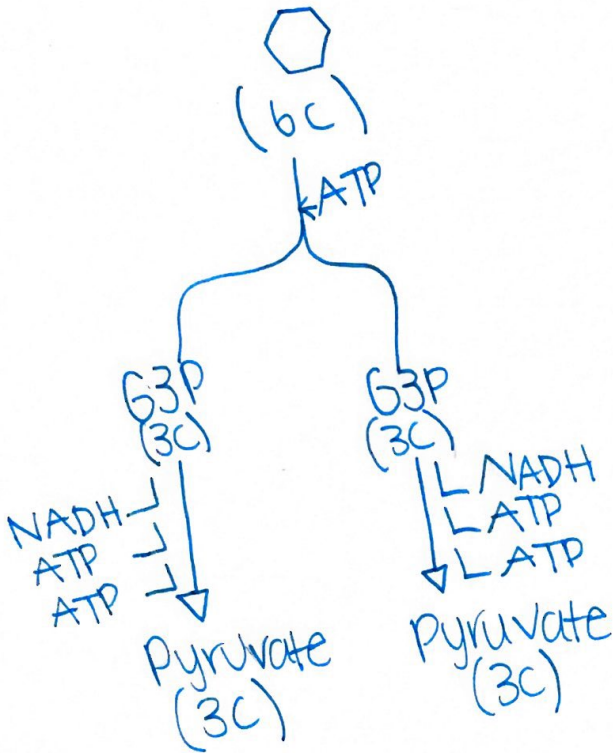 (6C)
ATP
G3P
(3C)
G3P
(3C)
NADH
ATP
ATP
NADH
ATP
ATP
Pyruvate
(3C)
Pyruvate
(3C)